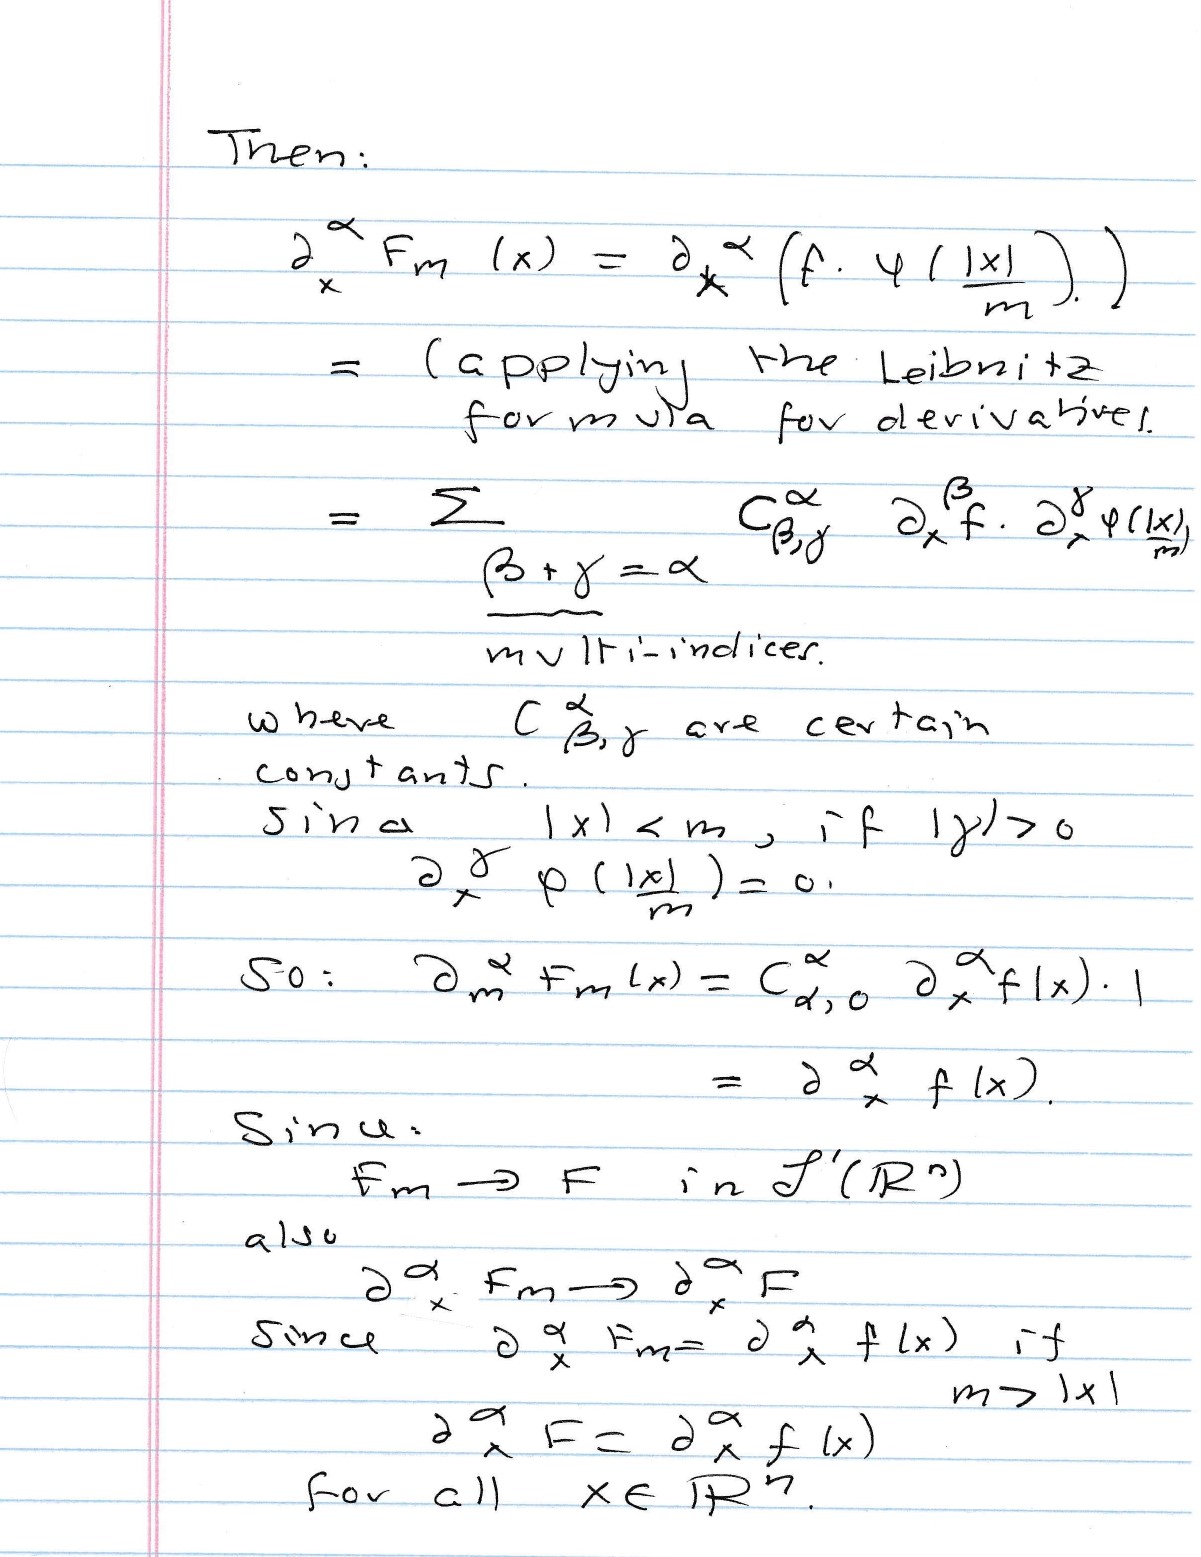 Then:
∂ₓ^α Fₘ (x) = ∂ₓ^α (f. φ(|x|/m).)
= (applying the Leibnitz
formula for derivatives.
= Σ_{β+γ=α} C^α_{β,γ} ∂ₓ^β f. ∂ₓ^γ φ(|x|/m)
multi-indices.
where C^α_{β,γ} are certain
constants.
Since |x| < m, if |γ|>0
∂ₓ^γ φ(|x|/m) = 0.
So: ∂ₘ^α Fₘ(x) = C^α_{α,0} ∂ₓ^α f(x). 1
= ∂ₓ^α f(x).
Since:
Fₘ → F in 𝒮'(ℝⁿ)
also
∂ₓ^α Fₘ → ∂ₓ^α F
Since ∂ₓ^α Fₘ = ∂ₓ^α f(x) if
m > |x|
∂ₓ^α F = ∂ₓ^α f(x)
for all x ∈ ℝⁿ.